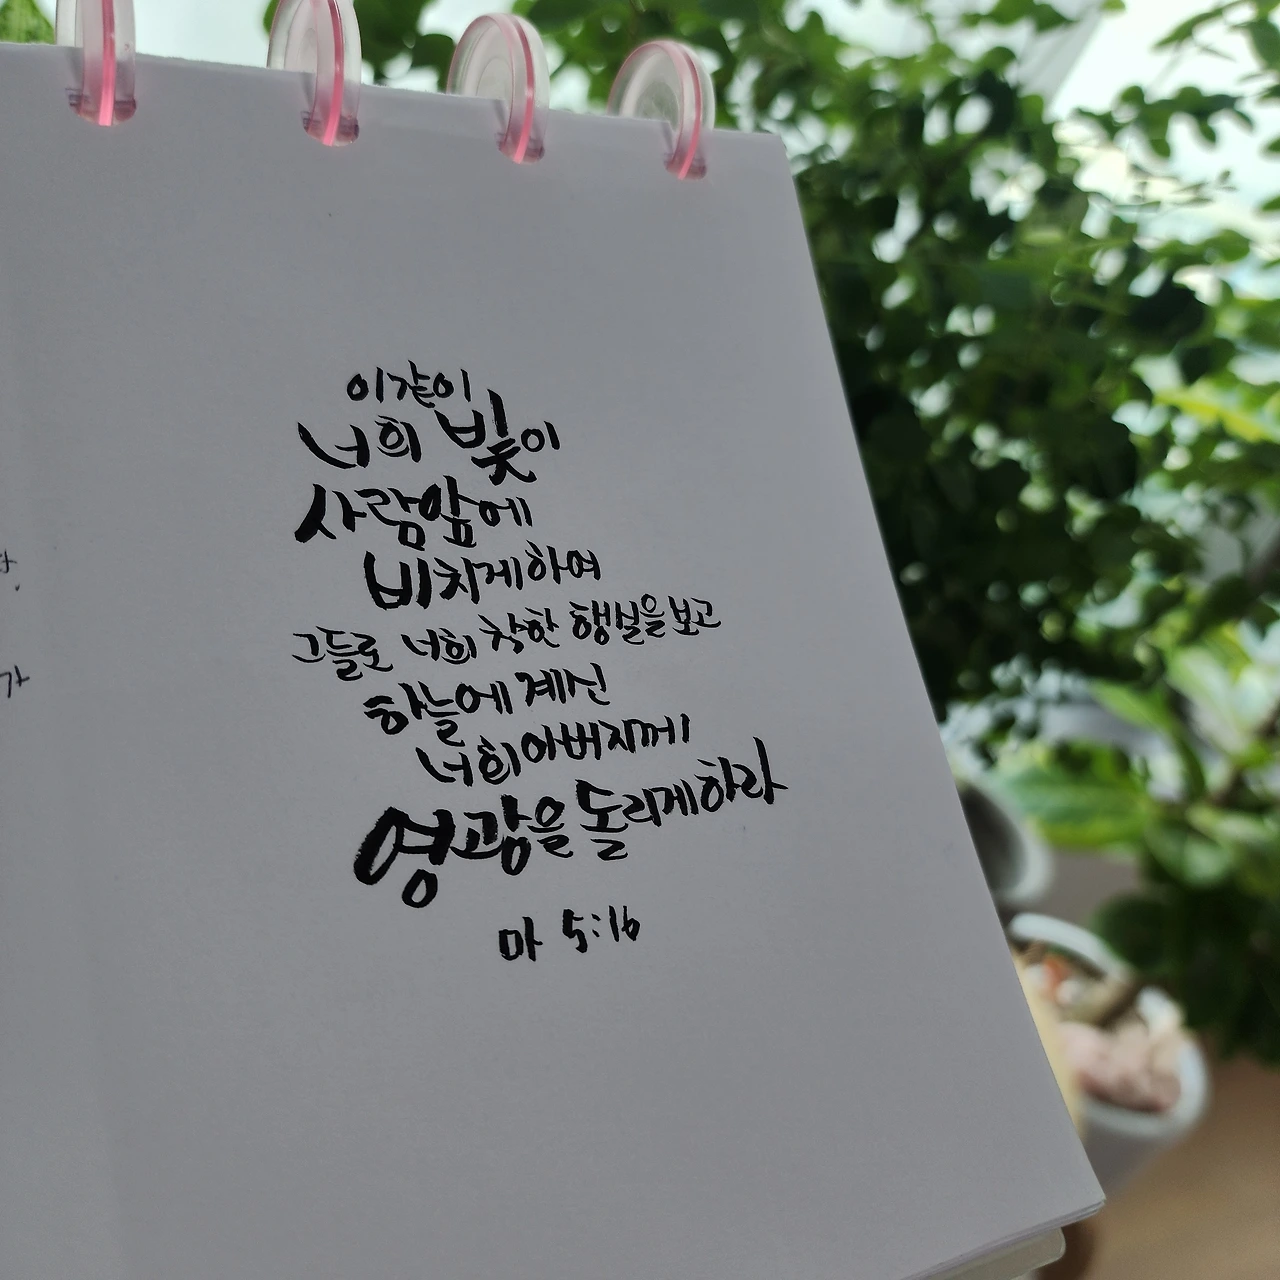 이같이
너희 빛이
사람앞에
비치게하여
그들로 너희 착한 행실을 보고
하늘에 계신
너희 아버지께
영광을 돌리게하라
마 5:16
가